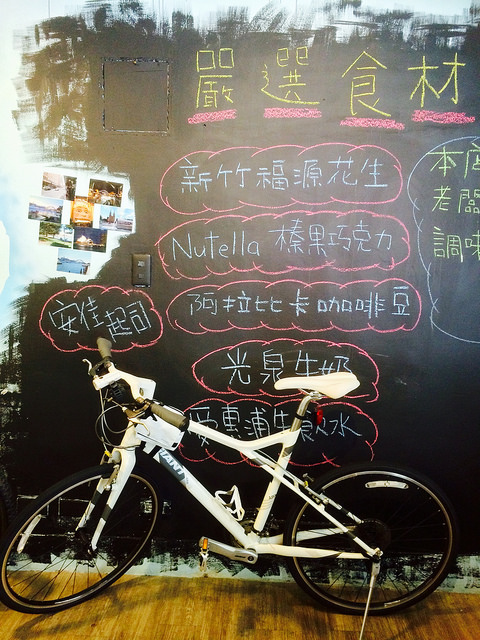 嚴選食材
新竹福源花生
Nutella 榛果巧克力
安佳起司
阿拉比卡咖啡豆
光泉牛奶
愛惠浦生飲水
本店
老闆
調味
GIANT